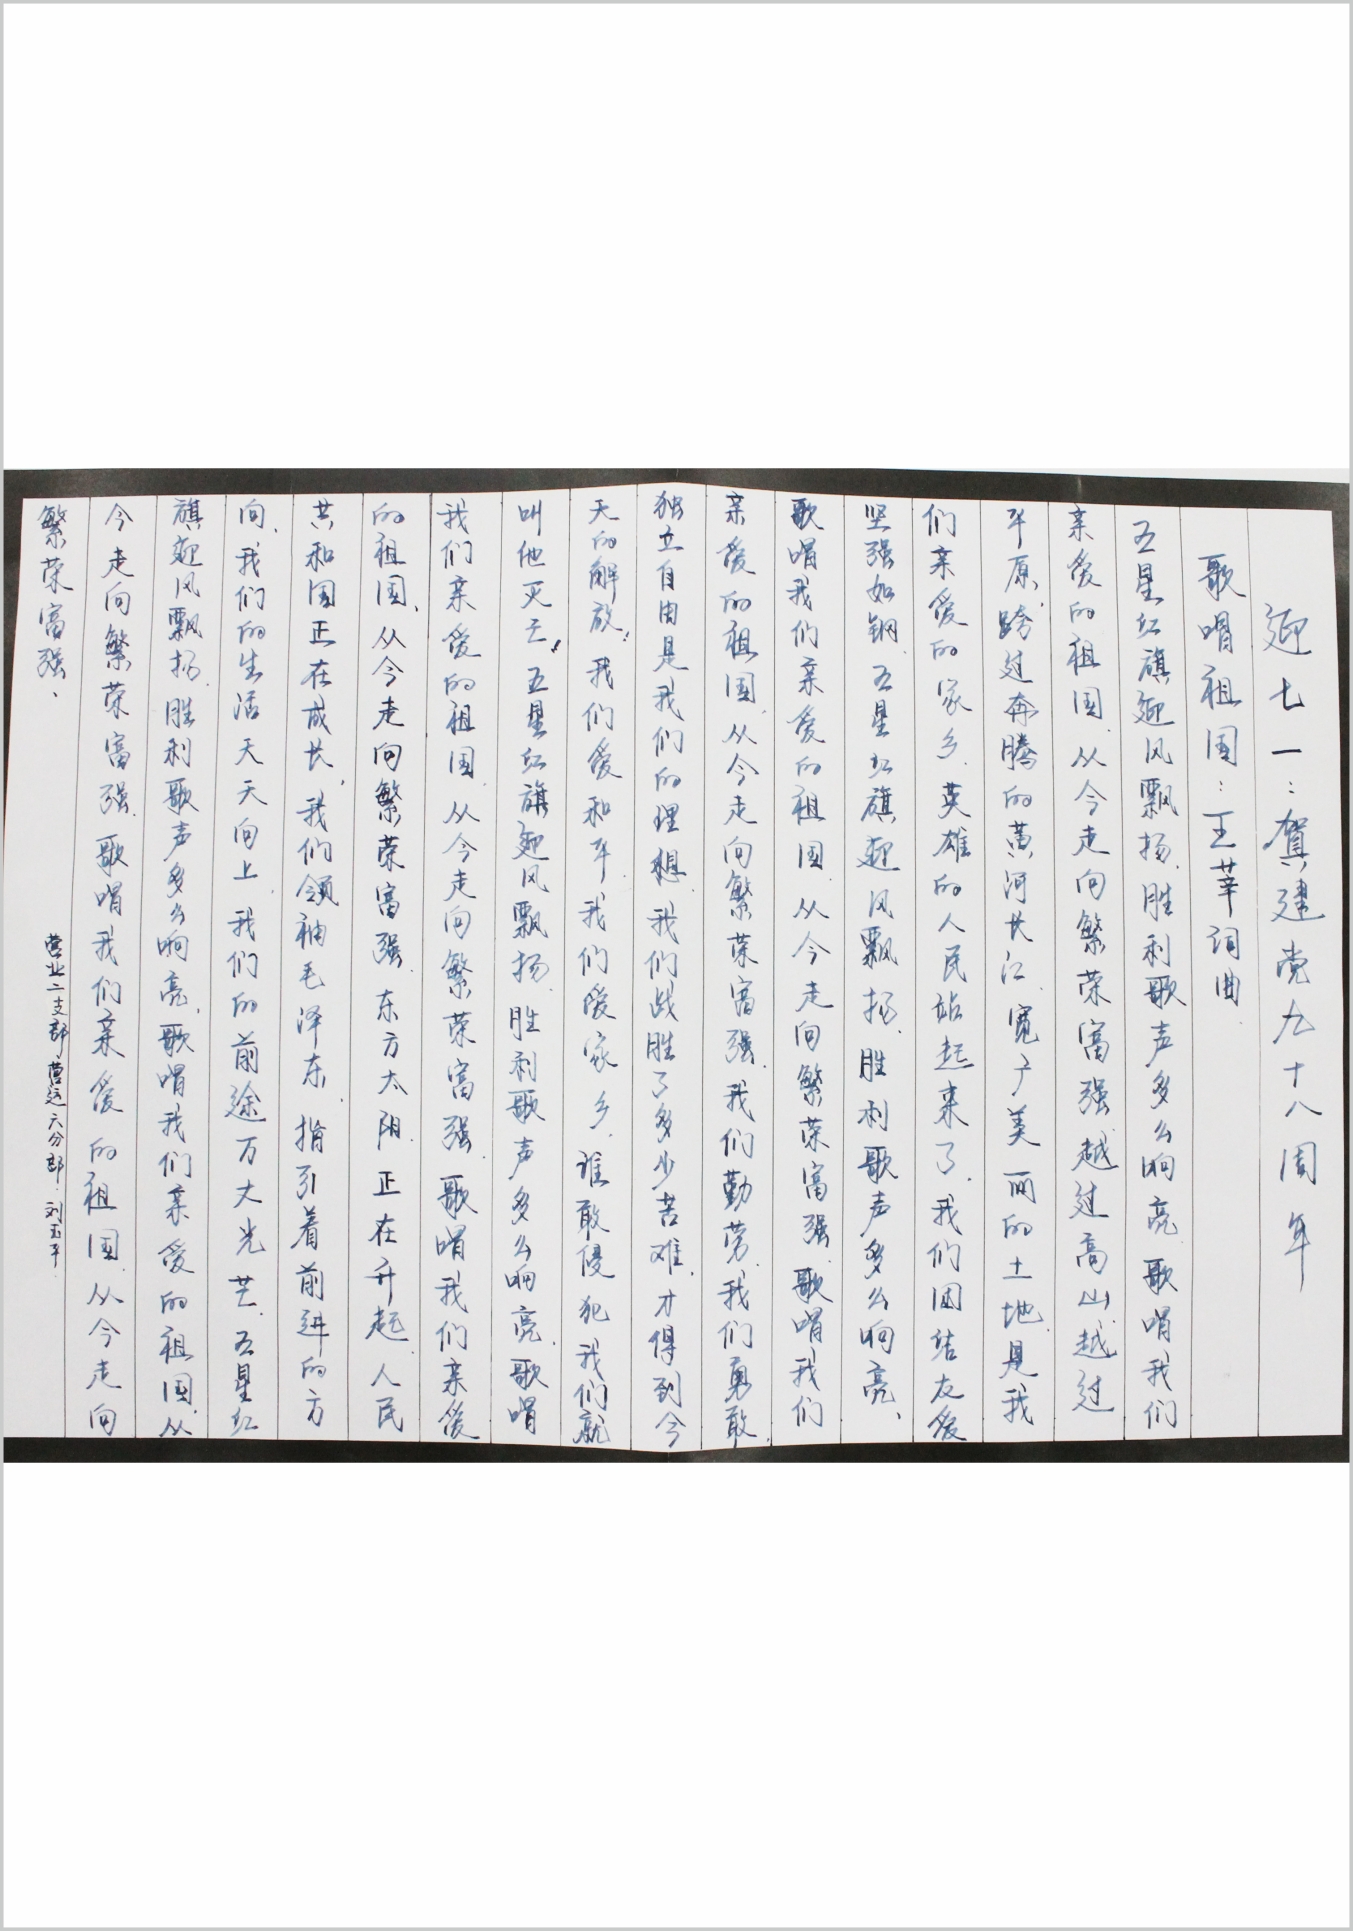 迎七一：贺建党九十八周年
歌唱祖国：王莘词曲
五星红旗迎风飘扬.胜利歌声多么响亮.歌唱我们
亲爱的祖国.从今走向繁荣富强.越过高山.越过
平原.跨过奔腾的黄河长江.宽广美丽的土地.是我
们亲爱的家乡.英雄的人民站起来了.我们团结友爱
坚强如钢.五星红旗迎风飘扬.胜利歌声多么响亮、
歌唱我们亲爱的祖国.从今走向繁荣富强.歌唱我们
亲爱的祖国.从今走向繁荣富强.我们勤劳.我们勇敢.
独立自由是我们的理想.我们战胜了多少苦难.才得到今
天的解放！我们爱和平.我们爱家乡.谁敢侵犯我们就
叫他灭亡！五星红旗迎风飘扬.胜利歌声多么响亮.歌唱
我们亲爱的祖国.从今走向繁荣富强.歌唱我们亲爱
的祖国、从今走向繁荣富强.东方太阳.正在升起.人民
共和国正在成长、我们领袖毛泽东.指引着前进的方
向.我们的生活天天向上.我们的前途万丈光芒.五星红
旗迎风飘扬.胜利歌声多么响亮.歌唱我们亲爱的祖国.从
今走向繁荣富强.歌唱我们亲爱的祖国.从今走向
繁荣富强、
营业二支部.营运六分部.刘玉平.